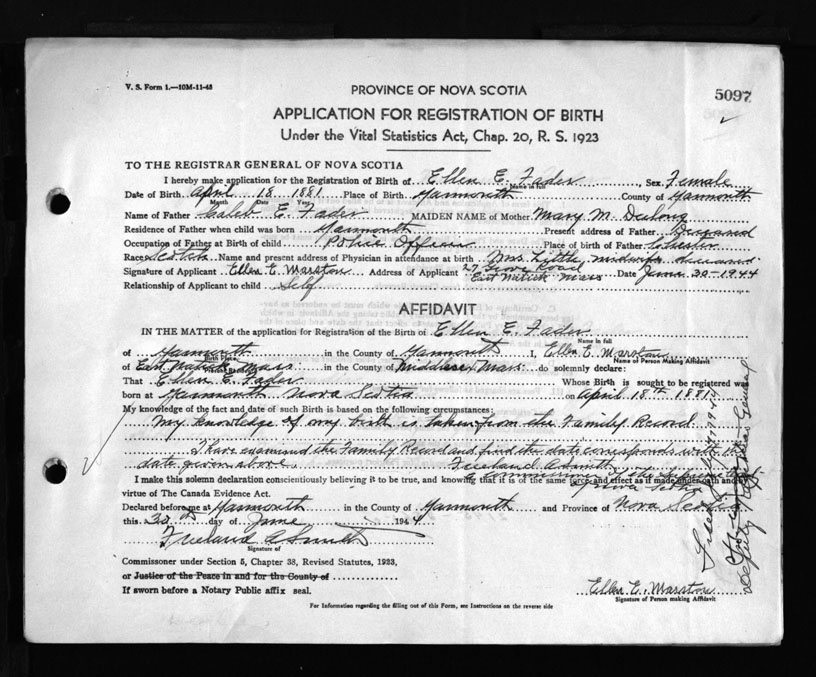 V. S. Form 1.—10M-11-43
PROVINCE OF NOVA SCOTIA
5097
APPLICATION FOR REGISTRATION OF BIRTH
Under the Vital Statistics Act, Chap. 20, R. S. 1923
TO THE REGISTRAR GENERAL OF NOVA SCOTIA
I hereby make application for the Registration of Birth of Ellen E. Fader, Sex Female
Name in full
Date of Birth April 18 1881 Place of Birth Yarmouth County of Yarmouth
Month Date Year
Name of Father Caleb E. Fader MAIDEN NAME of Mother Mary M.
Residence of Father when child was born Yarmouth Present address of Father Deceased
Occupation of Father at Birth of child Police Officer Place of birth of Father Chester
Race Scotch Name and present address of Physician in attendance at birth Mrs. Little, midwife deceased
Signature of Applicant Ellen E. Marston Address of Applicant 27 Grove Road Date June 30-1944
East Natick Mass
Relationship of Applicant to child Self
AFFIDAVIT
IN THE MATTER of the application for Registration of the Birth of Ellen E. Fader
Name in full
of Yarmouth in the County of Yarmouth I, Ellen E. Marston
Birth Place Name of Person Making Affidavit
of East Natick Mass. in the County of Middlesex Mass. do solemnly declare:
That Ellen E. Fader Whose Birth is sought to be registered was
born at Yarmouth Nova Scotia on April 18th 1881
My knowledge of the fact and date of such Birth is based on the following circumstances:
My knowledge of my birth is taken from the Family Record.
I have examined the Family Record and find the date corresponds with the
date given above. Freeland A Smith
A Commissioner of the Supreme Court
Nova Scotia
I make this solemn declaration conscientiously believing it to be true, and knowing that it is of the same force and effect as if made under oath and by
virtue of The Canada Evidence Act.
Declared before me at Yarmouth in the County of Yarmouth and Province of Nova Scotia
this 30th day of June 1944
Freeland A Smith
Signature of
Commissioner under Section 5, Chapter 38, Revised Statutes, 1923,
or Justice of the Peace in and for the County of
If sworn before a Notary Public affix seal.
Ellen E. Marston
Signature of Person making Affidavit
For Information regarding the filling out of this Form, see Instructions on the reverse side
Filed July 1944
Deputy Registrar General